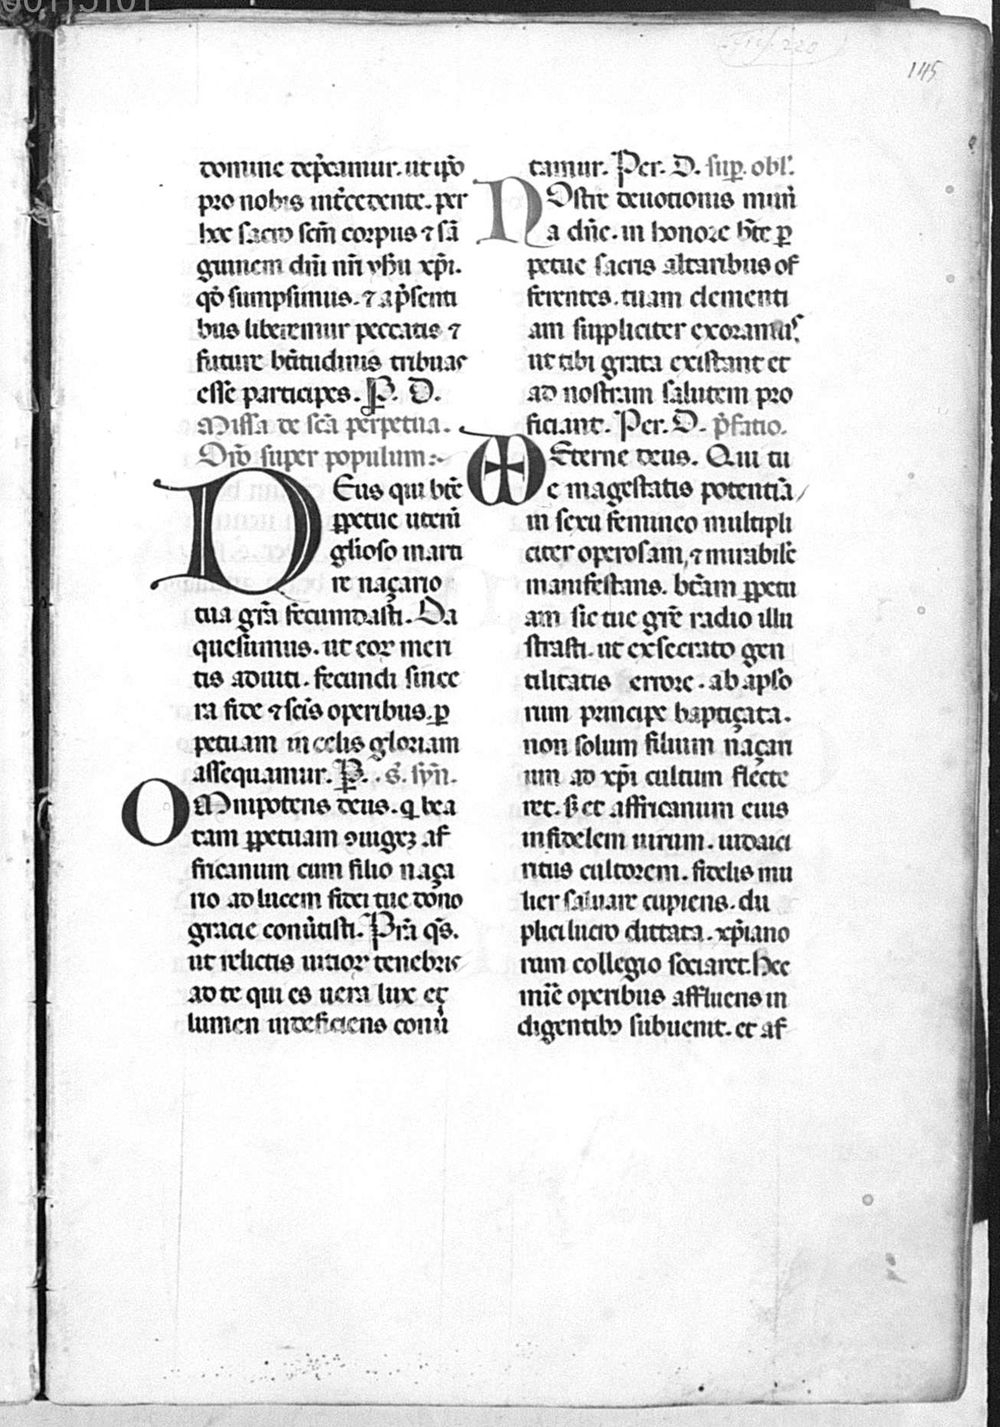 145
domine dep̃camur. ut ip̃o
pro nobis int̃cedente. per
hec sacro sc̃m corpus ⁊ sã
guinem dñi nr̃i yh̃u xp̃i.
qõ sumpsimus. ⁊ a p̃senti
bus liberemur peccatis ⁊
future bt̃itudinis tribuas
esse participes. P̃. D.
Missa de sc̃a perpetua.
Or̃o super populum:~
DEus qui bt̃e
ꝑpetue uterũ
glioso marti
re naçario
tua gr̃a fecundasti. Da
quesumus. ut cor men
tis aduiti. fecundi since
ra fide ⁊ sc̃is operibus. ꝑ
petuam in celis gloriam
assequamur. P̃. s̃. syñ.
OMnipotens deus. q̃ bea
tam ꝑpetuam ꝯiugeʒ af
fricanum cum filio naça
rio ad lucem fidei tue dõno
gracie conũtisti. Pr̃a q̃s.
ut relictis uitiorʒ tenebris
ad te qui es uera lux et
lumen indeficiens conũ
tamur. Per. D. sup̱. obl̃.
NOstre deuotionis mun̄
a dñe. in honore bt̃e ꝑ
petue sacris altaribus of
ferentes. tuam clementi
am suppliciter exoramuˢ
ut tibi grata existant et
ad nostram salutem pro
ficiant. Per. D. p̃fatio.
Eterne deus. Qui tu
e magestatis potentiã
in sexu femineo multipli
citer operosam, ⁊ mirabilẽ
manifestans. bt̃am ꝑpetu
am sic tue gr̃e radio illu
strasti. ut exsecrato gen
tilitatis errore. ab apl̃o
rum principe baptiçata.
non solum filium naçari
um ad xp̃i cultum flecte
ret. ß et affricanum eius
infidelem uirum. iudaici
ritus cultorem. fidelis mu
lier saluare cupiens. du
plici lucro dittata. xp̃iano
rum collegio sociaret. Hec
mĩe operibus affluens in
digentibꝰ subuenit. et af